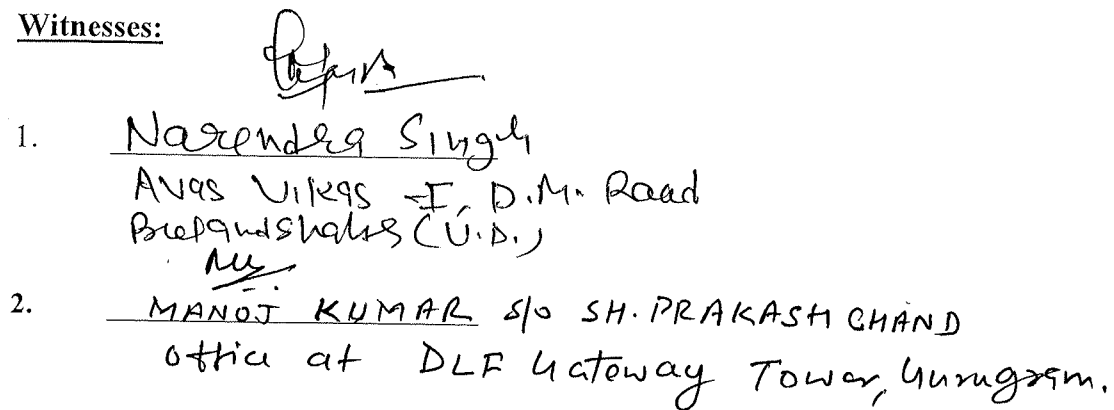 Witnesses:
1. Narendra Singh
Avas Vikas -I, D.M. Road
(U.P.)
2. MANOJ KUMAR S/o SH. PRAKASH CHAND
office at DLF Gateway Tower, Gurugram.